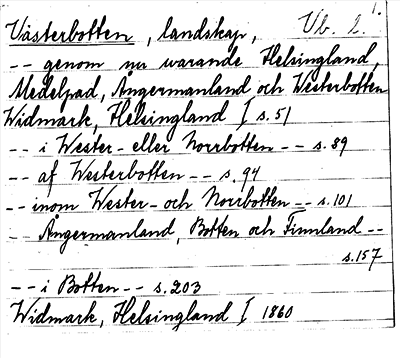 Västerbotten, landskap, Vb. 2. 1.
-- genom nu warande Helsingland,
Medelpad, Ångermanland och Westerbotten
Widmark, Helsingland I s. 51
-- i Wester- eller Norrbotten -- s. 89
-- af Westerbotten -- s. 94
-- inom Wester- och Norrbotten -- s. 101
-- Ångermanland, Botten och Finnland --
s. 157
-- i Botten -- s. 203
Widmark, Helsingland I 1860